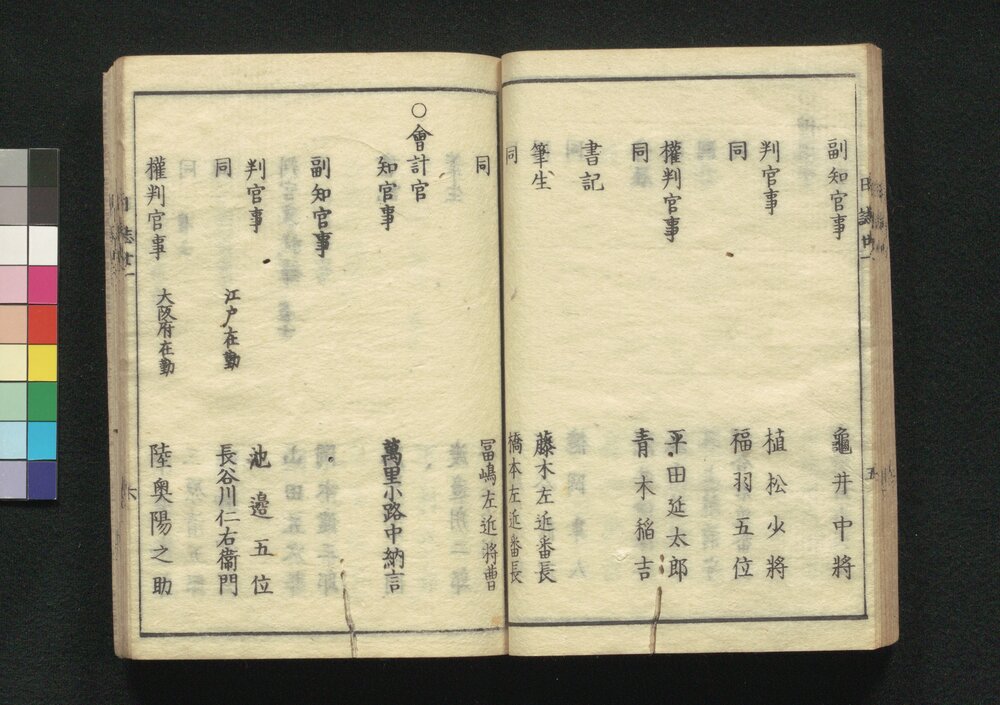 副知官事 龜井中將
判官事 植松少將
同 福羽五位
權判官事 平田延太郎
同 青木稲吉
書記
筆生 藤木左近番長
同 橋本左近番長
同 冨嶋左近將曹
○會計官
知官事 萬里小路中納言
副知官事
判官事 池邊五位
同 江戸在勤 長谷川仁右衛門
權判官事 大阪府在勤 陸奥陽之助
五
六